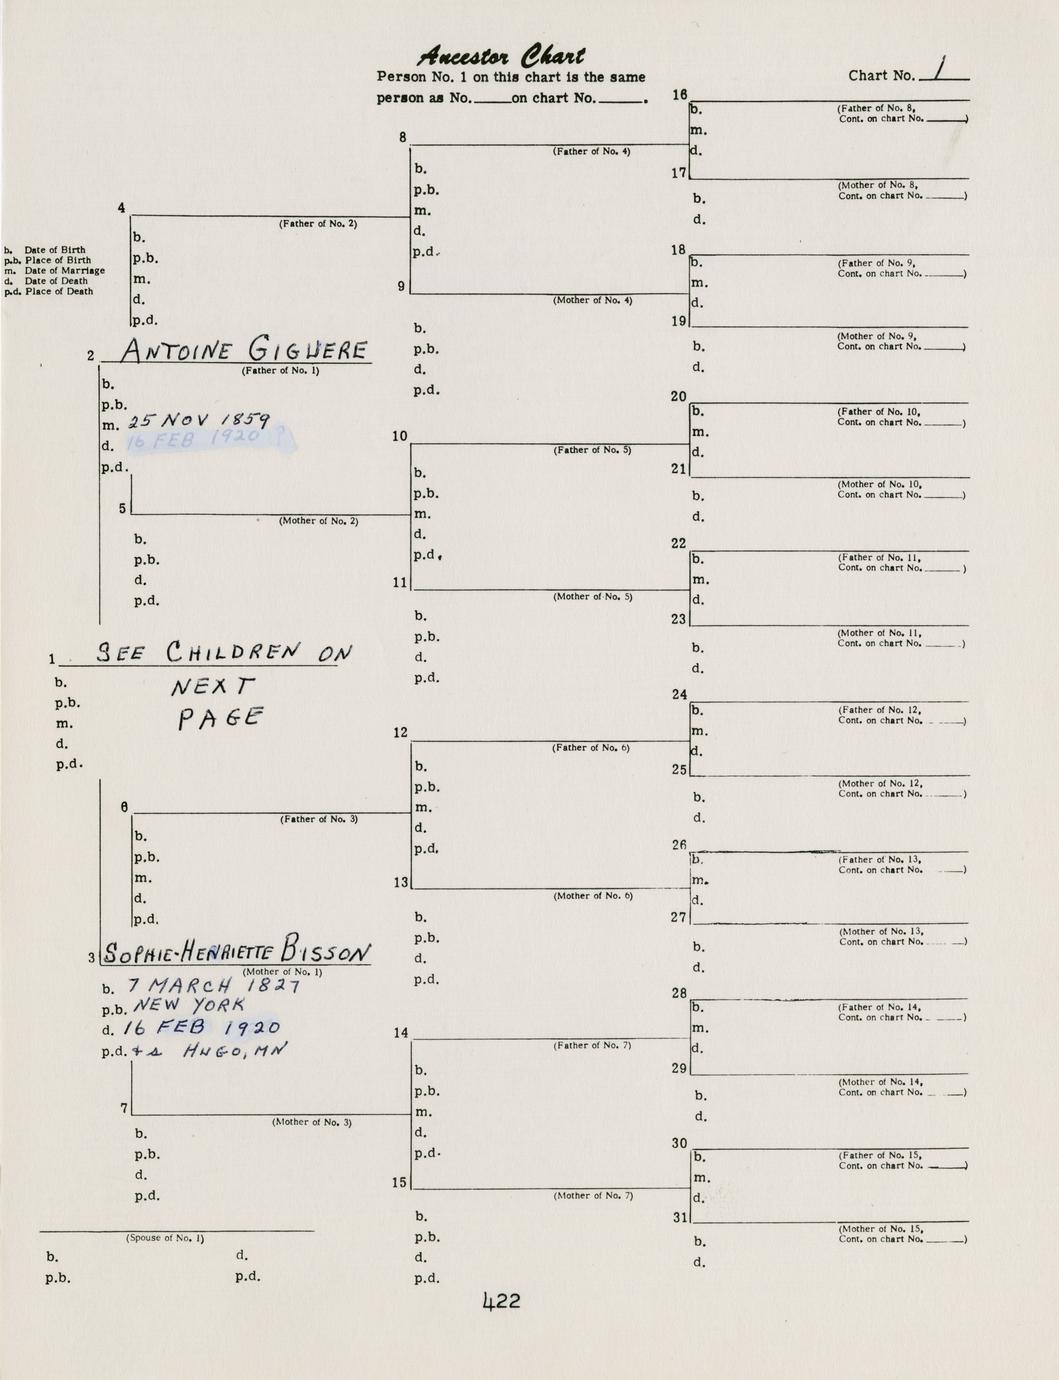 Ancestor Chart
Person No. 1 on this chart is the same
person as No. on chart No. .
Chart No. 1
b. Date of Birth
p.b. Place of Birth
m. Date of Marriage
d. Date of Death
p.d. Place of Death
4
(Father of No. 2)
b.
p.b.
m.
d.
p.d.
2 ANTOINE GIGUERE
(Father of No. 1)
b.
p.b.
m. 25 NOV 1859
d. 16 FEB 1920 ?
p.d.
5
(Mother of No. 2)
b.
p.b.
d.
p.d.
1 SEE CHILDREN ON
b. NEXT
p.b. PAGE
m.
d.
p.d.
6
(Father of No. 3)
b.
p.b.
m.
d.
p.d.
3 SOPHIE-HENRIETTE BISSON
(Mother of No. 1)
b. 7 MARCH 1827
p.b. NEW YORK
d. 16 FEB 1920
p.d. HUGO, MN
7
(Mother of No. 3)
b.
p.b.
d.
p.d.
(Spouse of No. 1)
b. d.
p.b. p.d.
8
(Father of No. 4)
b.
p.b.
m.
d.
p.d.
9
(Mother of No. 4)
b.
p.b.
d.
p.d.
10
(Father of No. 5)
b.
p.b.
m.
d.
p.d.
11
(Mother of No. 5)
b.
p.b.
d.
p.d.
12
(Father of No. 6)
b.
p.b.
m.
d.
p.d.
13
(Mother of No. 6)
b.
p.b.
d.
p.d.
14
(Father of No. 7)
b.
p.b.
m.
d.
p.d.
15
(Mother of No. 7)
b.
p.b.
d.
p.d.
16
b. (Father of No. 8,
Cont. on chart No. )
m.
d.
17
(Mother of No. 8,
b. Cont. on chart No. )
d.
18
b. (Father of No. 9,
m. Cont. on chart No. )
d.
19
(Mother of No. 9,
b. Cont. on chart No. )
d.
20
b. (Father of No. 10,
Cont. on chart No. )
m.
d.
21
(Mother of No. 10,
b. Cont. on chart No. )
d.
22
b. (Father of No. 11,
Cont. on chart No. )
m.
d.
23
(Mother of No. 11,
b. Cont. on chart No. )
d.
24
b. (Father of No. 12,
Cont. on chart No. )
m.
d.
25
(Mother of No. 12,
b. Cont. on chart No. )
d.
26
b. (Father of No. 13,
Cont. on chart No. )
m.
d.
27
(Mother of No. 13,
b. Cont. on chart No. )
d.
28
b. (Father of No. 14,
Cont. on chart No. )
m.
d.
29
(Mother of No. 14,
b. Cont. on chart No. )
d.
30
b. (Father of No. 15,
Cont. on chart No. )
m.
d.
31
(Mother of No. 15,
b. Cont. on chart No. )
d.
422